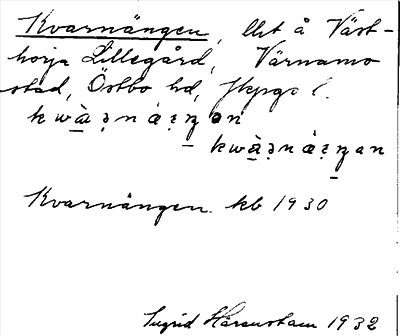 Kvarnängen, lht å Väst-
horja Lillegård, Värnamo
stad, Östbo hd, Jkpgs l.
kwàṛnáɪ̣ŋən
kwàṛnáɪ̣ŋan
Kvarnängen. kb 1930
Ingrid Härenstam 1932